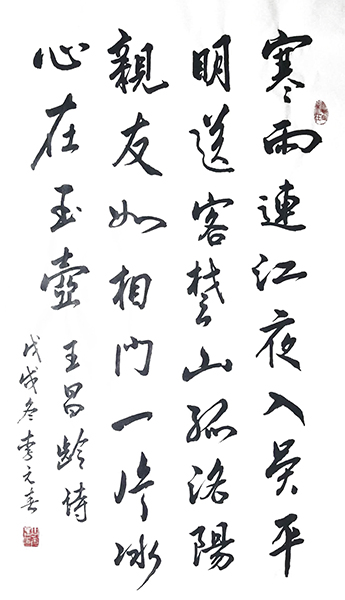 寒雨連江夜入吳平
明送客楚山孤洛陽
親友如相問一片冰
心在玉壺
王昌齡詩
戊戌冬李元喜